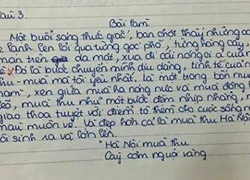 Câu 3.
Bài làm
Một buổi sáng thức giấc, bạn chợt thấy những cơ
e lạnh len lỏi qua từng góc phố, từng hàng cây
man trên da mát, xua đi cái nóng oi ả cuối
Đó là bước chuyển mình dịu dàng, tinh tế của
thu - mùa mà tôi yêu nhất. Là một trong bốn mùa
nam, xen giữa mùa hạ nóng nực và mùa đông
lẽo, mùa thu như một bước đệm nhịp nhàng,
giao thoa tuyệt vời điểm tô thêm cho cuộc sống
màu muôn vẻ. Và đẹp hơn cả là mùa thu Hà Nội
ôi sinh ra và lớn lên.
"Hà Nội mùa thu
Cây cơm nguội vàng